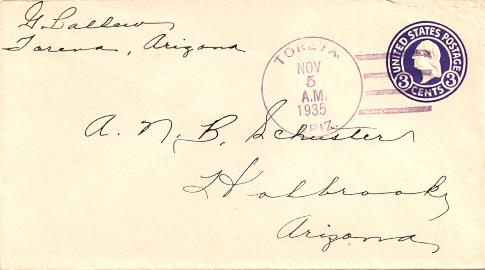 G. Ballew
Toreva, Arizona
TOREVA.
NOV
5
A.M.
1935
ARIZ.
UNITED STATES POSTAGE
3 CENTS 3
A. N. B. Schuster
Holbrook,
Arizona,